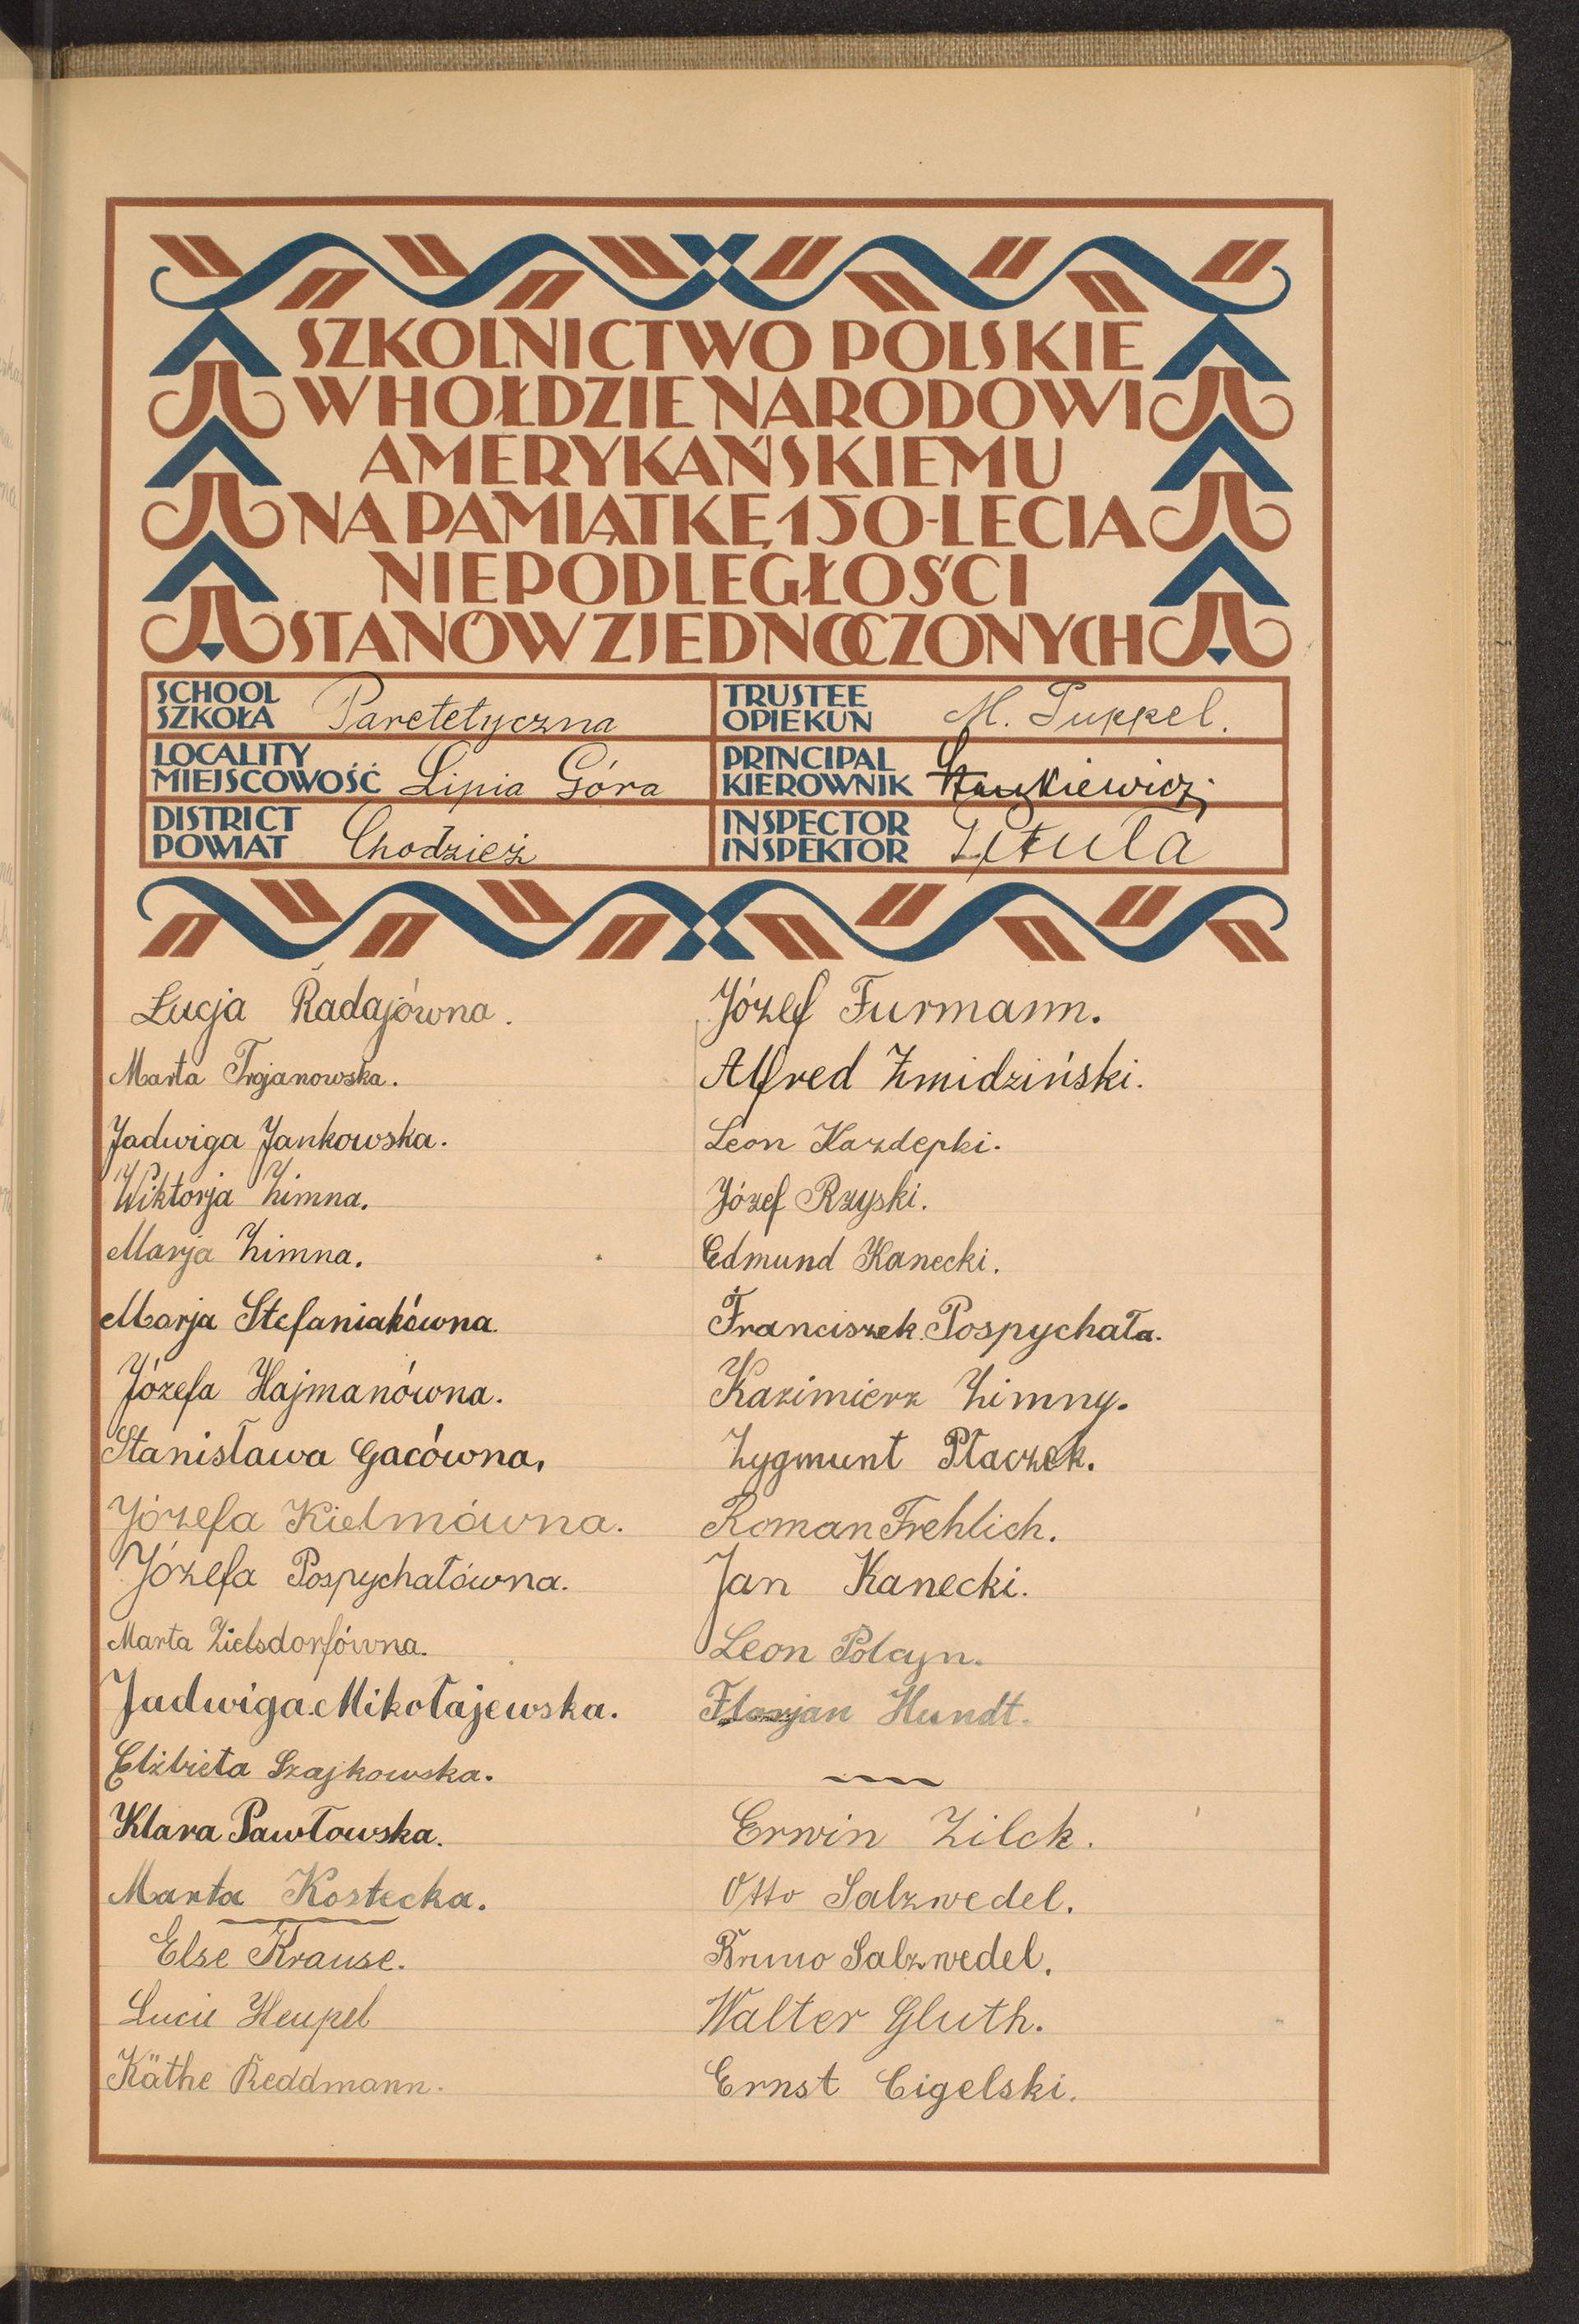 SZKOLNICTWO POLSKIE
W HOŁDZIE NARODOWI
AMERYKAŃSKIEMU
NA PAMIĄTKĘ 150-LECIA
NIEPODLEGŁOŚCI
STANÓW ZJEDNOCZONYCH
SCHOOL
SZKOŁA Paretetyczna
TRUSTEE
OPIEKUN M. Puppel.
LOCALITY
MIEJSCOWOŚĆ Lipia Góra
PRINCIPAL
KIEROWNIK
DISTRICT
POWIAT Chodzież
INSPECTOR
INSPEKTOR
Łucja Radajówna.
Marta Trojanowska.
Jadwiga Jankowska.
Wiktorja Zimna.
Marja Zimna.
Marja Stefaniakówna.
Józefa Hajmanówna.
Stanisława Gacówna.
Józefa Kielmówna.
Józefa Pospychałówna.
Marta Zielsdorfówna.
Jadwiga Mikołajewska.
Elżbieta Szajkowska.
Klara Pawłowska.
Marta Kostecka.
Else Krause.
Lucie Heupel
Käthe Reddmann.
Józef Furmann.
Alfred Żmidziński.
Leon Kazdepki.
Józef Rzyski.
Edmund Kanecki.
Franciszek Pospychała.
Kazimierz Zimny.
Zygmunt Płaczek.
Roman Frehlich.
Jan Kanecki.
Leon Polcyn.
Florjan Hundt.
Erwin Zilck.
Otto Salzwedel.
Bruno Salzwedel.
Walter Gluth.
Ernst Cigelski.